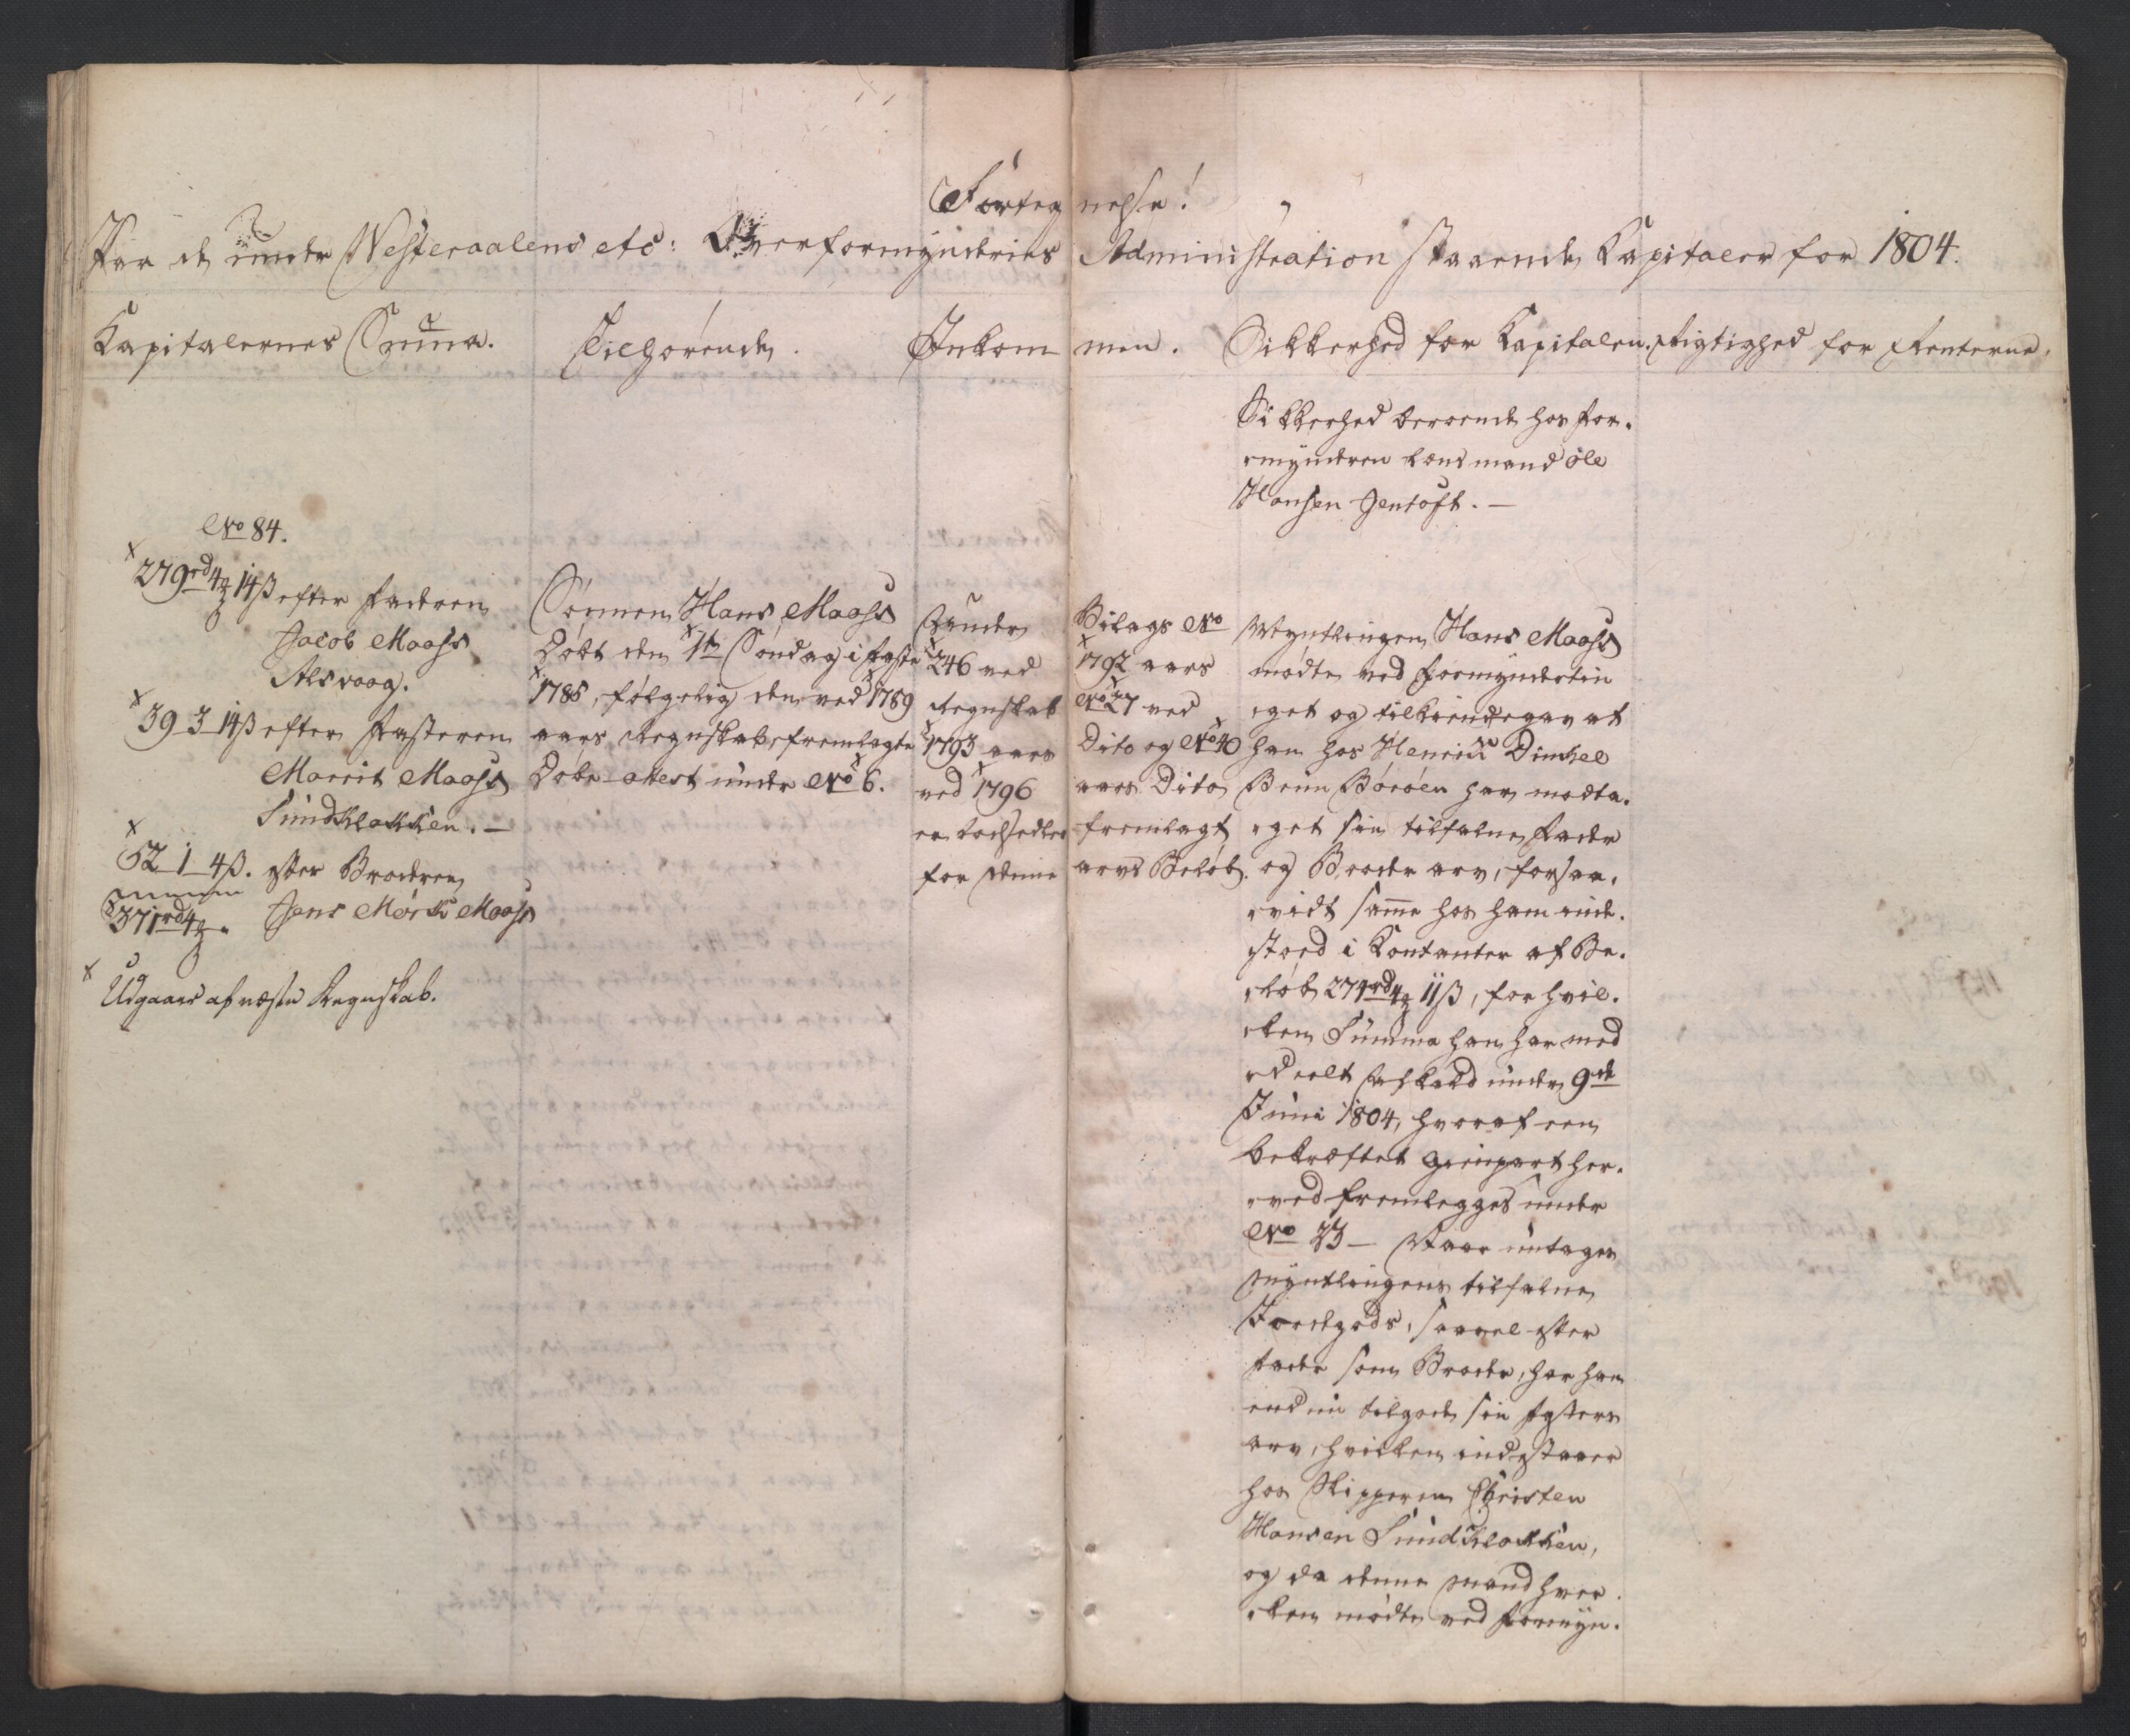 Fortegnelse!
Paa de under Westeraalens etc: Overformynderies Administration staaende Kapitaler for 1804.
Kapitalernes Suma.
Tilhørende.
Inkommen.
Sikkerhed for Kapitalen.
Rigtighed for Renterne.
Sikkerhed beroende hos For-
-mynderen Lensmand Ole
Hansen Jentoft. —
No 84.
279rd 4 14ß efter Faderen
Jacob Maass
Alsvaag.
39 3 14ß efter Fasteren
Marrit Maass
Sundklakken. —
52 1 4ß. efter Broderen
Jens Mørk Maass
371rd 4
Udgaaer af næste Regnskab.
Sønnen Hans Maass
Døbt den 1te Søndag i Faste
1785, følgelig den ved 1789
aars Regnskab fremlagte
Døbe-attest under No 6.
Under
246 ved
Regnskab
1793 aars
ved 1796
er Lodsedler
for denne
Bilags No
1792 aars
No 27 ved
Dito og No 40
aars Dito
fremlagt
arvs Beløb.
Myntlingen Hans Maass
mødte ved Formynderting
-get og tilkiendegav at
han hos Henrich Dinkel
Brun Børøen har modta-
-get sin tilfalne Fader
og Broder arv, forsaa-
-vidt samme hos ham inde-
stoed i Contanter af Be-
-løb 271rd 4 11ß, for hvil-
-ken Summa han har med
-deelt Afkald under 9de
Juni 1804, hvoraf een
bekræftet Gienpart her-
-ved fremlegges under
No 23 — Naar untages
Myntlingens tilfalne
Jordegods, saavel efter
Fader som Broder, har han
endnu tilgode sin Fasters
arv, hvilken indestaaer
hos Skipperen Christen
Hansen Sundklakken,
og da denne Mand hver-
-ken mødte ved Formyn-